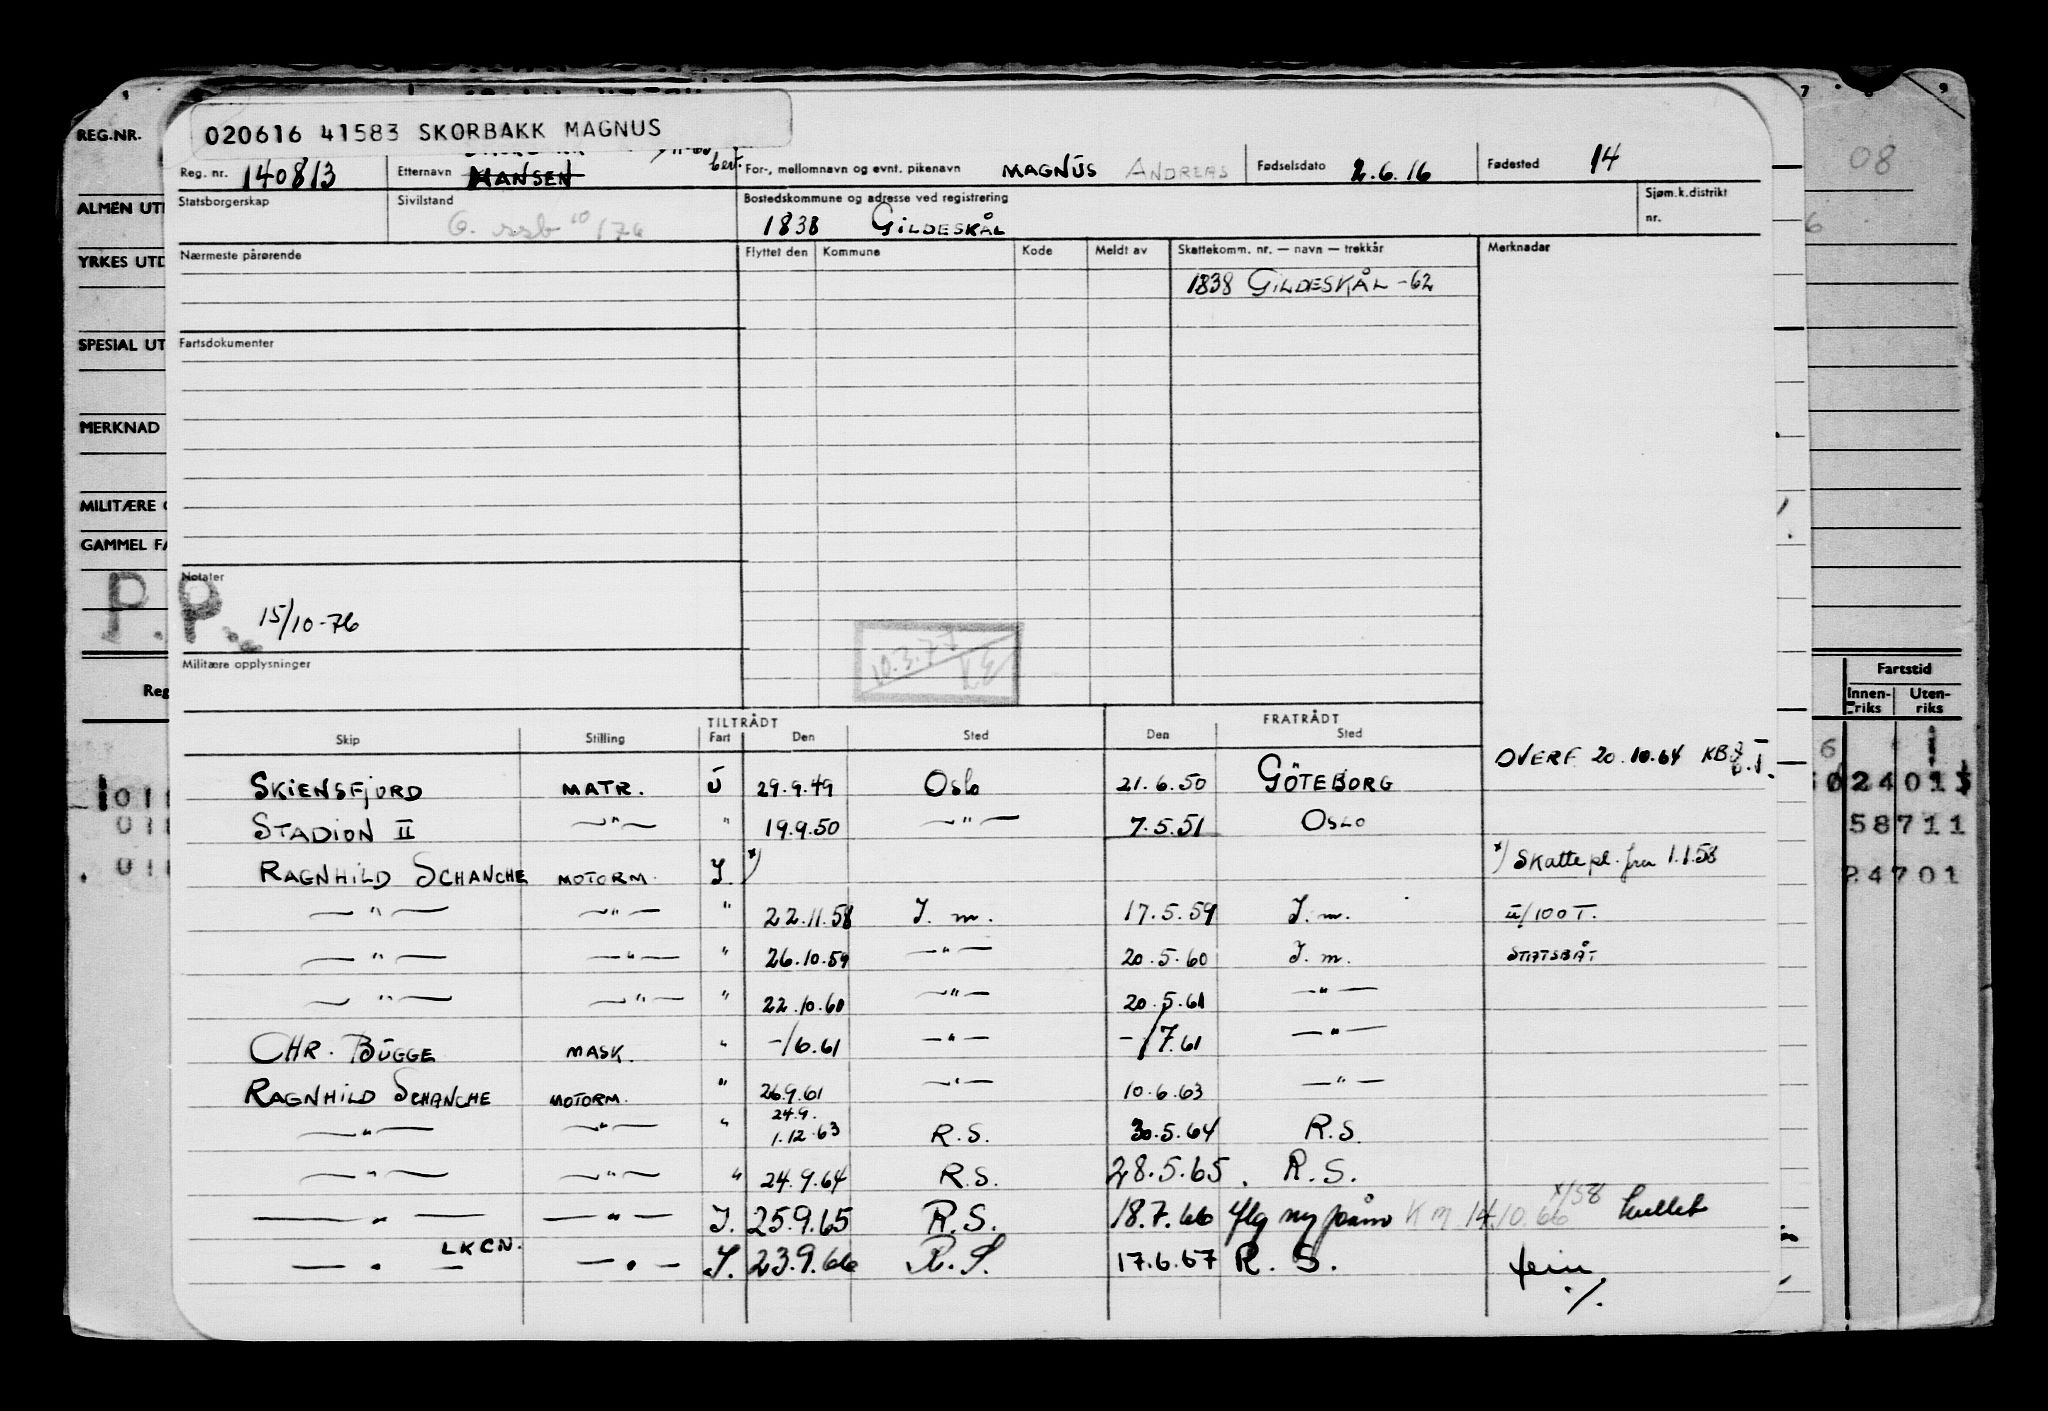 020616 41583 SKORBAKK MAGNUS
REG.NR.
Reg. nr. 140813 Etternavn HANSEN For-, mellomnavn og evnt. pikenavn MAGNUS ANDREAS Fødselsdato 2.6.16 Fødested 14
08
ALMEN UT
Statsborgerskap Sivilstand Bostedskommune og adresse ved registrering Sjøm.k.distrikt
nr.
1838 GILDESKÅL
YRKES UTD
Nærmeste pårørende Flyttet den Kommune Kode Meldt av Skattekomm. nr. — navn — trekkår Merknader
1838 GILDESKÅL -62
SPESIAL UT
Fartsdokumenter
MERKNAD
MILITÆRE
GAMMEL FA
Notater
P. P.
15/10-76
10.3.77
Militære opplysninger
Reg
Fartstid
Innen-riks Uten-riks
TILTRÅDT FRATRÅDT
Skip Stilling Fart Den Sted Den Sted
OVERF 20.10.64
SKIENSFJORD MATR. U 29.9.49 Oslo 21.6.50 GÖTEBORG
STADION II —"— " 19.9.50 —"— 7.5.51 OSLO
58711
RAGNHILD SCHANCHE MOTORM. I x) x) Skattepl. fra 1.1.58
24701
—"— —"— " 22.11.58 I. m. 17.5.59 I. m. u/100T.
—"— —"— " 26.10.59 —"— 20.5.60 I. m. STATSBÅT
—"— —"— " 22.10.60 —"— 20.5.61 —"—
CHR. BUGGE MASK. " -/6.61 —"— -/7.61 —"—
RAGNHILD SCHANCHE MOTORM. " 26.9.61 —"— 10.6.63 —"—
24.9.
—"— —"— " 1.12.63 R.S. 30.5.64 R.S.
—"— —"— " 24.9.64 R.S. 28.5.65. R.S.
—"— —"— I. 25.9.65 R.S. 18.7.66 flg ny påm 14.10.66 x/58 hullet
LKCN.
—"— —"— I. 23.9.66 R.S. 17.6.67 R.S. ferie